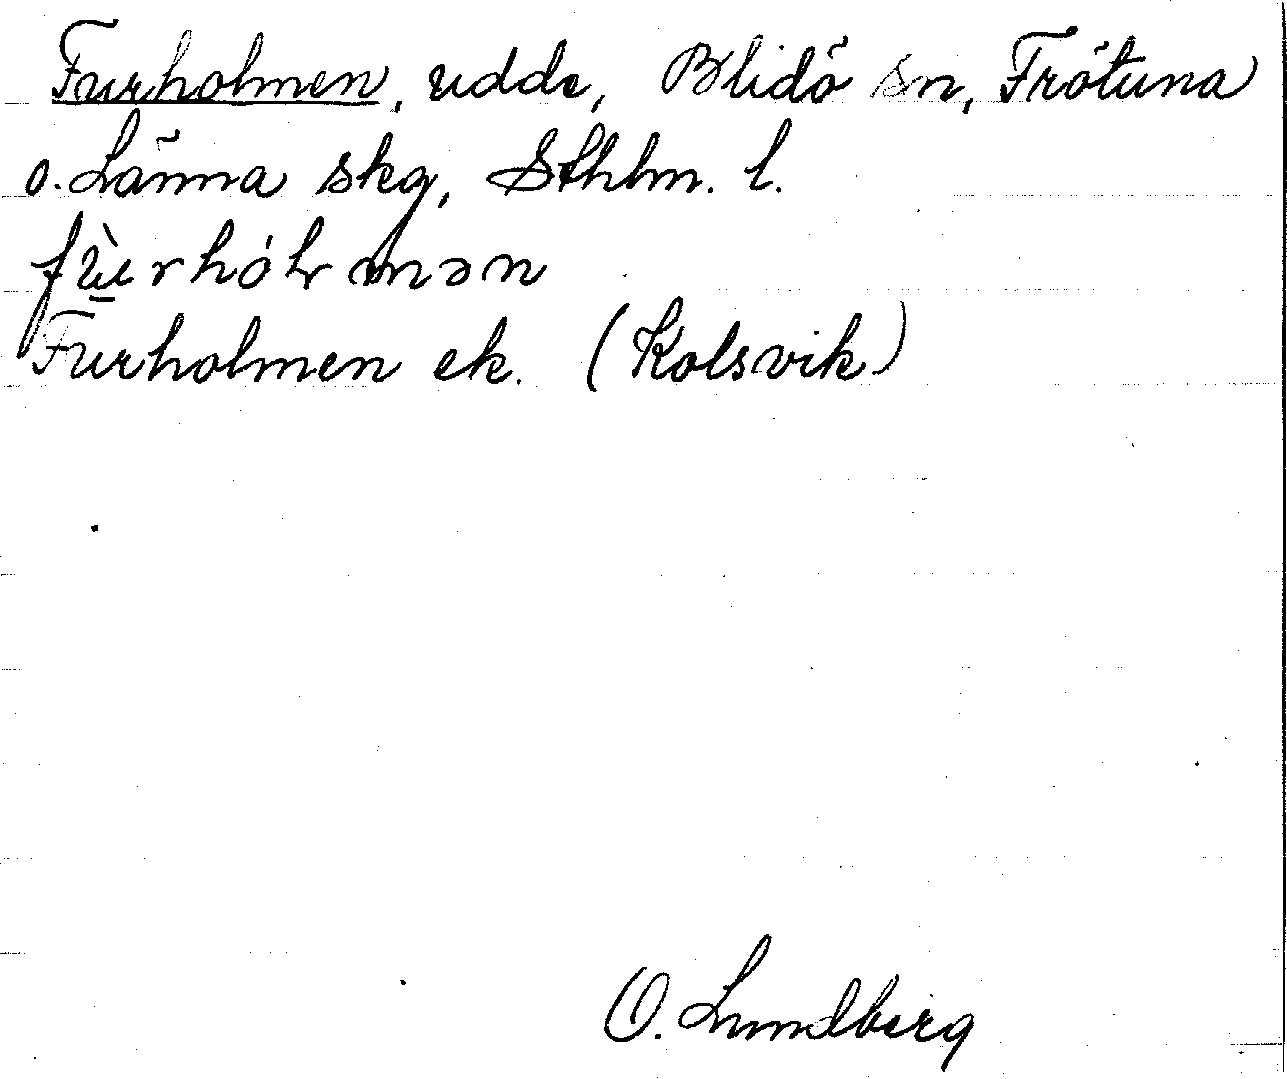 Furholmen, udde, Blidö sn, Frötuna
o. Länna skg, Sthlm. l.
fùrhólmən
Furholmen ek. (Kolsvik)
O. Lundberg